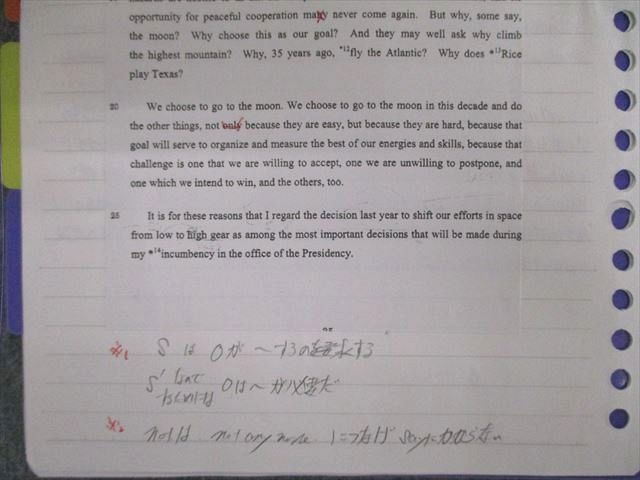 opportunity for peaceful cooperation may never come again. But why, some say,
the moon? Why choose this as our goal? And they may well ask why climb
the highest mountain? Why, 35 years ago, *12fly the Atlantic? Why does *13Rice
play Texas?
20 We choose to go to the moon. We choose to go to the moon in this decade and do
the other things, not only because they are easy, but because they are hard, because that
goal will serve to organize and measure the best of our energies and skills, because that
challenge is one that we are willing to accept, one we are unwilling to postpone, and
one which we intend to win, and the others, too.
25 It is for these reasons that I regard the decision last year to shift our efforts in space
from low to high gear as among the most important decisions that will be made during
my *14incumbency in the office of the Presidency.
S は Oが 〜するのを要求する
S' Oは〜が必要だ
not は not any more